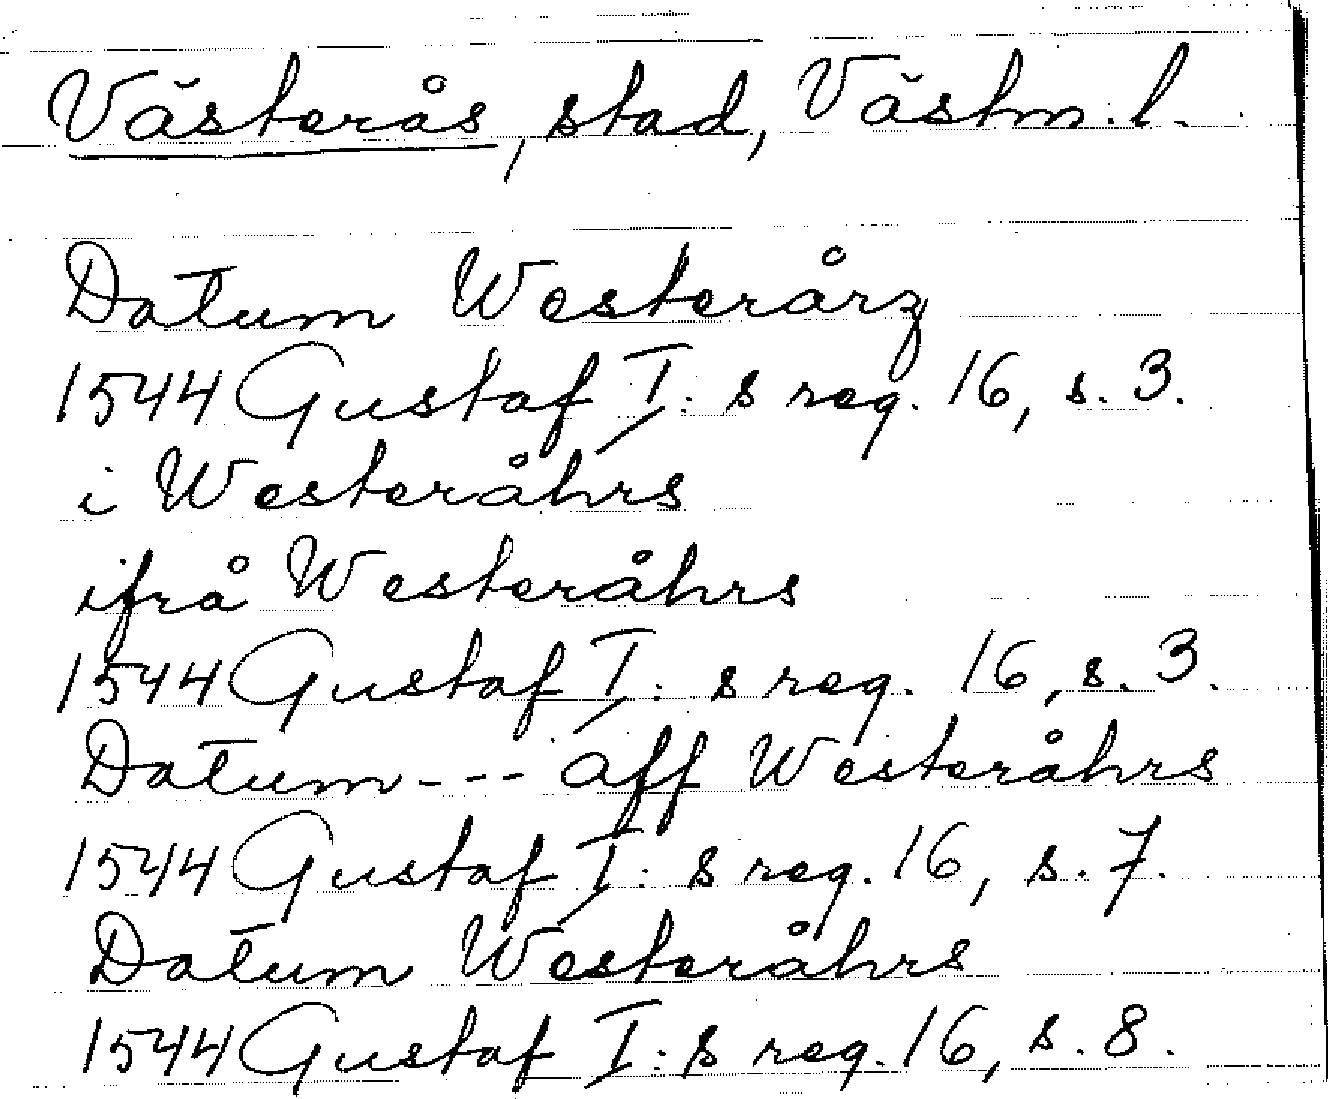 Västerås, stad, Västm. l.
Datum Westerårz
1544 Gustaf I: s reg. 16, s. 3.
i Westeråhrs
ifrå Westeråhrs
1544 Gustaf I: s reg. 16, s. 3.
Datum --- aff Westeråhrs
1544 Gustaf I: s reg. 16, s. 7.
Datum Westeråhrs
1544 Gustaf I: s reg. 16, s. 8.